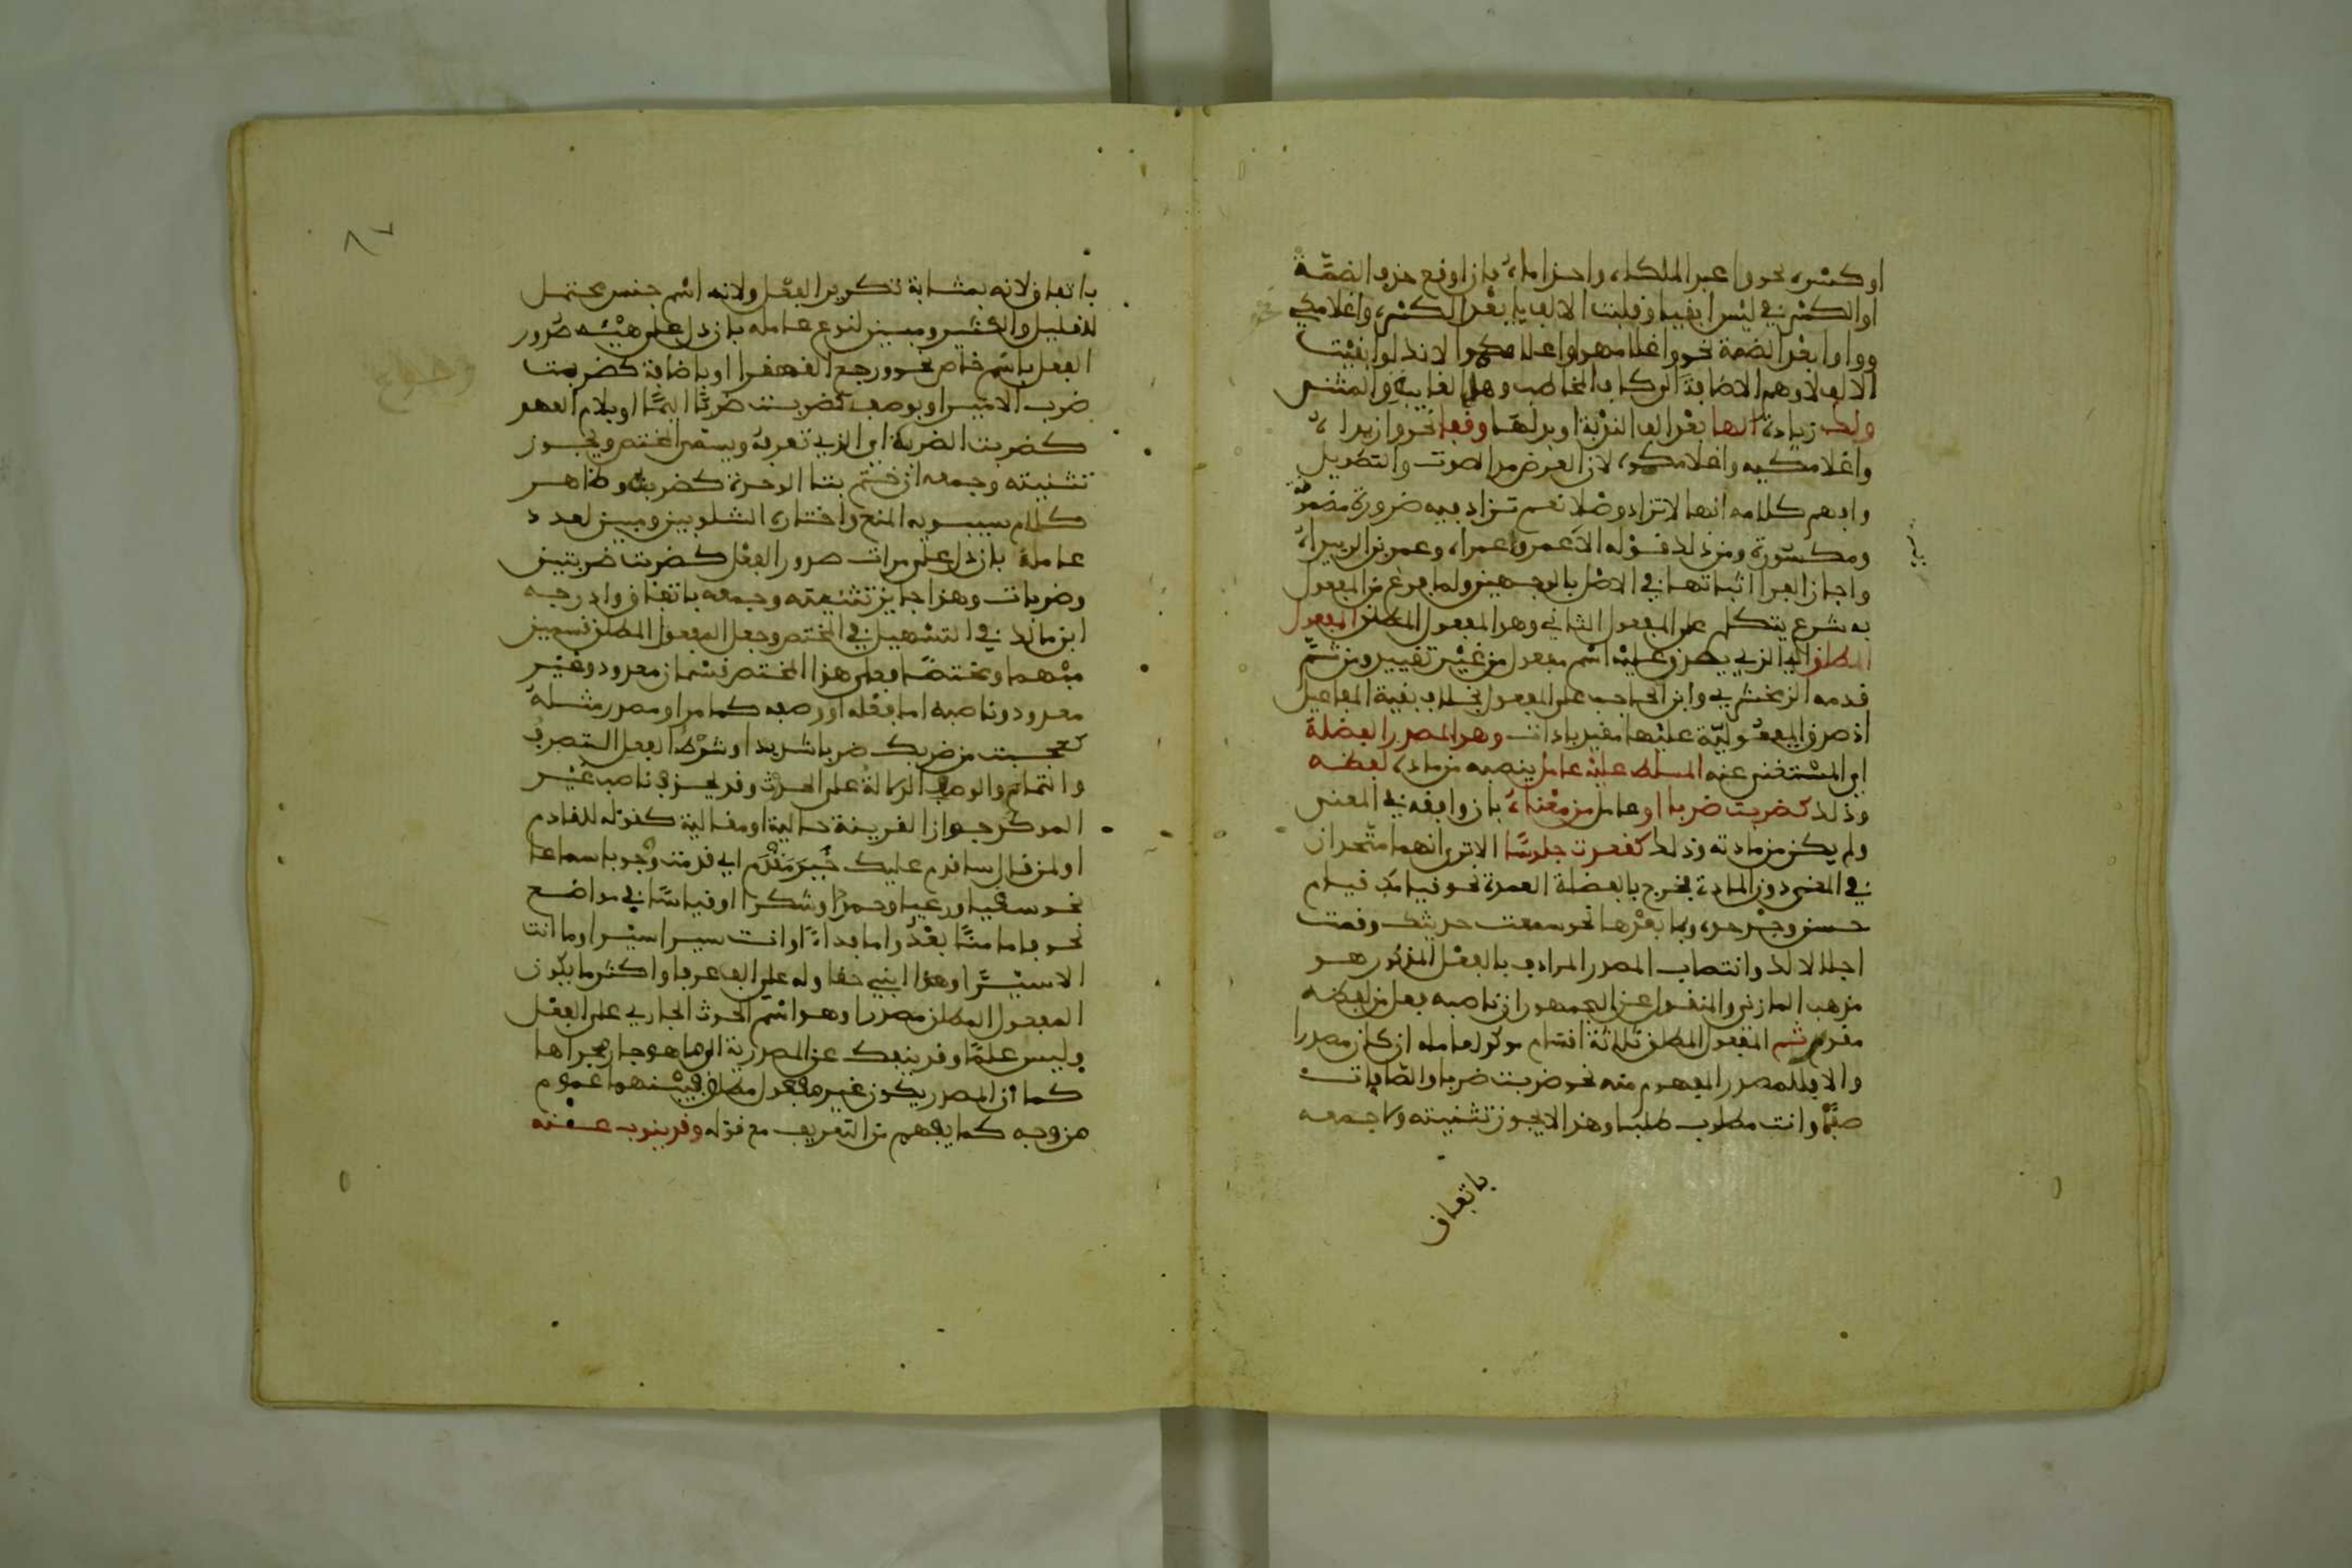 او كسرة نحو وا عبد الملكاه واحذاماه فان اوقع حذف الضمة
او الكسرة في لبس ابقيا وقلبت الالف ياء بعد الكسرة واغلامكي
وواوا بعد الضمة نحو واغلامهوا واغلامكموا لانه لو ابقيت
الالف لاوهم الاضافة الى كاف المخاطب وها الغايبة والمثنى
ولك زيادة الها بعد الف الندبة او بدلها وقفا نحو وازيداه
واغلامكيه واغلامكموه لان الغرض مد الصوت والتطويل
وافهم كلامه انها لا تزاد وصلا نعم تزاد فيه ضرورة مضمومة
ومكسورة ومن ذلك قوله الا عمرو اعمراه وعمرو بن الزبيراه
واجاز الفرا اثباتها في الوصل بالوجهين ولما فرغ من المفعول
به شرع يتكلم على المفعول الثاني وهو المفعول المطلق المفعول
المطلق اي الذي يصدق عليه اسم مفعول من غير تقييد ومن ثم
قدمه الزمخشري وابن الحاجب على المفعول بخلاف بقية المفاعيل
اذ صدق المفعولية عليها مقيد باداة وهو المصدر الفضلة
اي المستغنى عنه المسلط عليه عامل ينصبه من مادة لفظه
وذلك كضربت ضربا او عامل من معناه بان وافقه في المعنى
ولم يكن من مادته وذلك كقعدت جلوسا الا ترى انهما متحدان
في المعنى دون المادة فخرج بالفضلة العمدة نحو قيامك قيام
حسن وجد جده وبما بعدها نحو سمعت حديثك وقمت
اجلالا لك وانتصاب المصدر المرادف بالفعل المذكور هو
مذهب المازني والمنقول عن الجمهور ان ناصبه فعل من لفظه
مقدر ثم المفعول المطلق ثلاثة اقسام موكد لعامله ان كان مصدرا
والا فللمصدر المفهوم منه نحو ضربت ضربا والصافات
صفا وانت مطلوب طلبا وهذا لا يجوز تثنيته ولا جمعه
باتفاق
باتفاق لانه بمثابة تكرير الفعل ولانه اسم جنس يحتمل
للقليل والكثير ومبين لنوع عامله بان دل على هيئة صدور
الفعل باسم خاص نحو رجع القهقرا او باضافة كضربت
ضرب الامير او بوصف كضربت ضربا اليما او بلام العهد
كضربت الضربة اي الذي تعرفه ويسمى المختص ويجوز
تثنيته وجمعه ان ختم بتا الوحدة كضربة وظاهر
كلام سيبويه المنع واختاره الشلوبين ومبين لعدد
عامله بان دل على مرات صدور الفعل كضربت ضربتين
وضربات وهذا جايز تثنيته وجمعه باتفاق وادرجه
ابن مالك في التسهيل في المختص وجعل المفعول المطلق قسمين
مبهما ومختصا فعلى هذا المختص قسمان معدود وغير
معدود وناصبه اما فعله او وصفه كما مر او مصدر مثله
كعجبت من ضربك ضربا شديدا وشرط الفعل التصرف
والتمام والوصف الدلالة على الحدث وقد يحذف ناصب غير
الموكد جوازا لقرينة حالية او مقالية كقوله للقادم
او لمن قال ساقدم عليك خير مقدم اي قدمت ووجوبا سماعا
نحو سقيا ورعيا وحمدا وشكرا او قياسا في مواضع
نحو فاما منا بعد واما فداء او انت سيرا سيرا وما انت
الا سيرا وهذا ابني حقا وله علي الف عرفا واكثر ما يكون
المفعول المطلق مصدرا وهو اسم الحدث الجاري على الفعل
وليس علما وقد ينفك عن المصدرية الى ما هو جار مجراها
كما ان المصدر يكون غير مفعول مطلق فبينهما عموم
من وجه كما يفهم من التعريف مع قوله وقد ينوب عنه